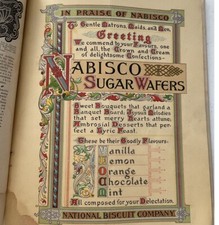 IN PRAISE OF NABISCO
To Gentle Patrons, Maids, and Men,
Greeting
We commend to your Favours, one
and all, the Crown and Cream
of delightsome Confections—
NABISCO
SUGAR WAFERS
Sweet Bouquets that garland a
Banquet Board; Joyous Melodies
that set merry Hearts attune;
Ambrosial Desserts that per-
fect a Lyric Feast.
These be their Goodly Flavours:
Vanilla
Lemon
Orange
Chocolate
Mint
All composed for your Delectation.
NATIONAL BISCUIT COMPANY